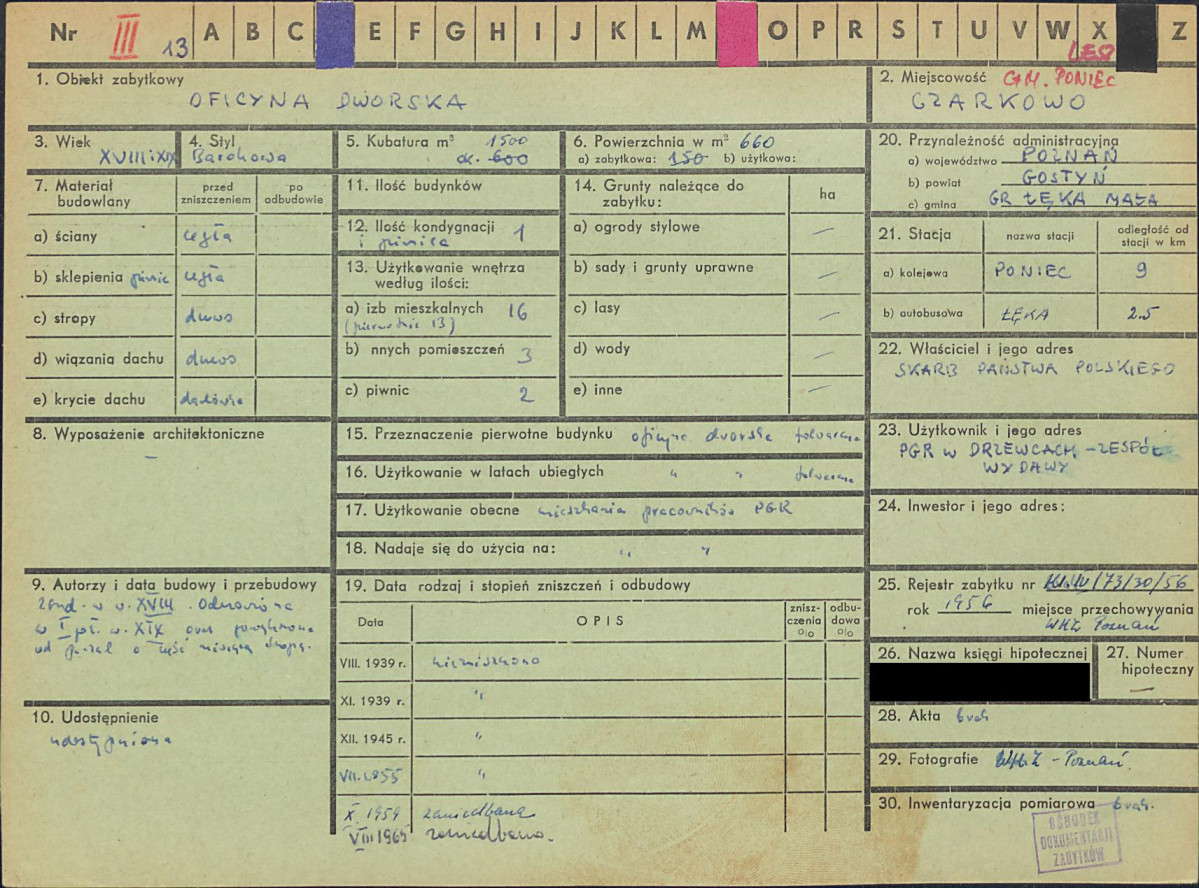 Nr III 13 A B C E F G H I J K L M O P R S T U V W X Z
LESZ
1. Obiekt zabytkowy
OFICYNA DWORSKA
2. Miejscowość GM. PONIEC
CZARKOWO
3. Wiek
XVIII i XIX
4. Styl
Barokowa
5. Kubatura m³ 1500
ok. 600
6. Powierzchnia w m² 660
a) zabytkowa: 150 b) użytkowa:
7. Materiał budowlany
przed zniszczeniem
po odbudowie
a) ściany cegła
b) sklepienia piwnic cegła
c) stropy drewo
d) wiązania dachu drewo
e) krycie dachu dachówka
8. Wyposażenie architektoniczne
—
9. Autorzy i data budowy i przebudowy
zbud. w w. XVIII. Odnowiona
w I poł. w. XIX oraz powiększona
od
10. Udostępnienie
udostępniona
11. Ilość budynków
12. Ilość kondygnacji 1
i piwnica
13. Użytkowanie wnętrza
według ilości:
a) izb mieszkalnych 16
(pierwotnie 13)
b) nnych pomieszczeń 3
c) piwnic 2
14. Grunty należące do
zabytku:
ha
a) ogrody stylowe —
b) sady i grunty uprawne —
c) lasy —
d) wody —
e) inne —
15. Przeznaczenie pierwotne budynku oficyna dworska folwarczna
16. Użytkowanie w latach ubiegłych " " folwarczna
17. Użytkowanie obecne mieszkania pracowników PGR
18. Nadaje się do użycia na: " "
19. Data rodzaj i stopień zniszczeń i odbudowy
Data
OPIS
znisz-
czenia
o|o
odbu-
dowa
o|o
VIII. 1939 r. niezniszczono
XI. 1939 r. "
XII. 1945 r. "
VII. 1955 "
X. 1959 zaniedbana
VIII 1965 zaniedbana.
20. Przynależność administracyjna
a) województwo POZNAŃ
b) powiat GOSTYŃ
c) gmina GR ŁĘKA MAŁA
21. Stacja
nazwa stacji
odległość od
stacji w km
a) kolejowa PONIEC 9
b) autobusowa ŁĘKA 2.5
22. Właściciel i jego adres
SKARB PAŃSTWA POLSKIEGO
23. Użytkownik i jego adres
PGR W DRZEWCACH - ZESPÓŁ
WYDAWY
24. Inwestor i jego adres:
25. Rejestr zabytku nr Kl.IV/73/30/56
rok 1956 miejsce przechowywania
WKZ Poznań
26. Nazwa księgi hipotecznej
27. Numer
hipoteczny
—
28. Akta brak
29. Fotografie WKZ - Poznań.
30. Inwentaryzacja pomiarowa - brak.
OŚRODEK
DOKUMENTACJI
ZABYTKÓW